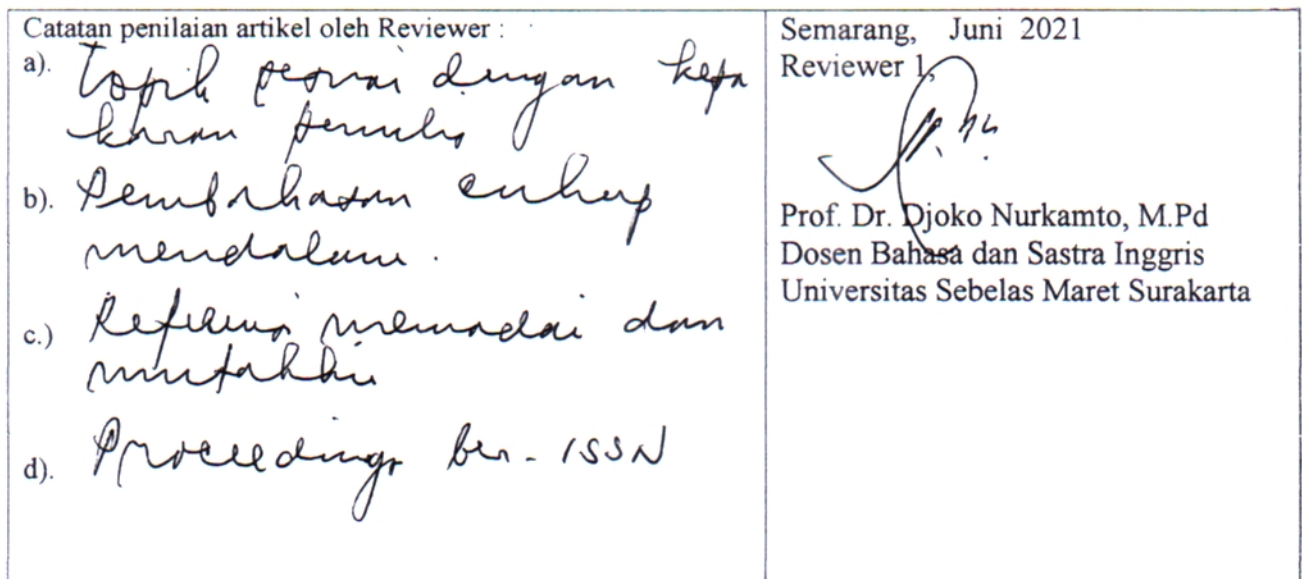 Catatan penilaian artikel oleh Reviewer :
a). Topik sesuai dengan kepa
karan penulis
b). Pembahasan cukup
mendalam.
c.) Referensi memadai dan
mutakhir
d). Proceedings ber-ISSN
Semarang, Juni 2021
Reviewer 1,
Prof. Dr. Djoko Nurkamto, M.Pd
Dosen Bahasa dan Sastra Inggris
Universitas Sebelas Maret Surakarta